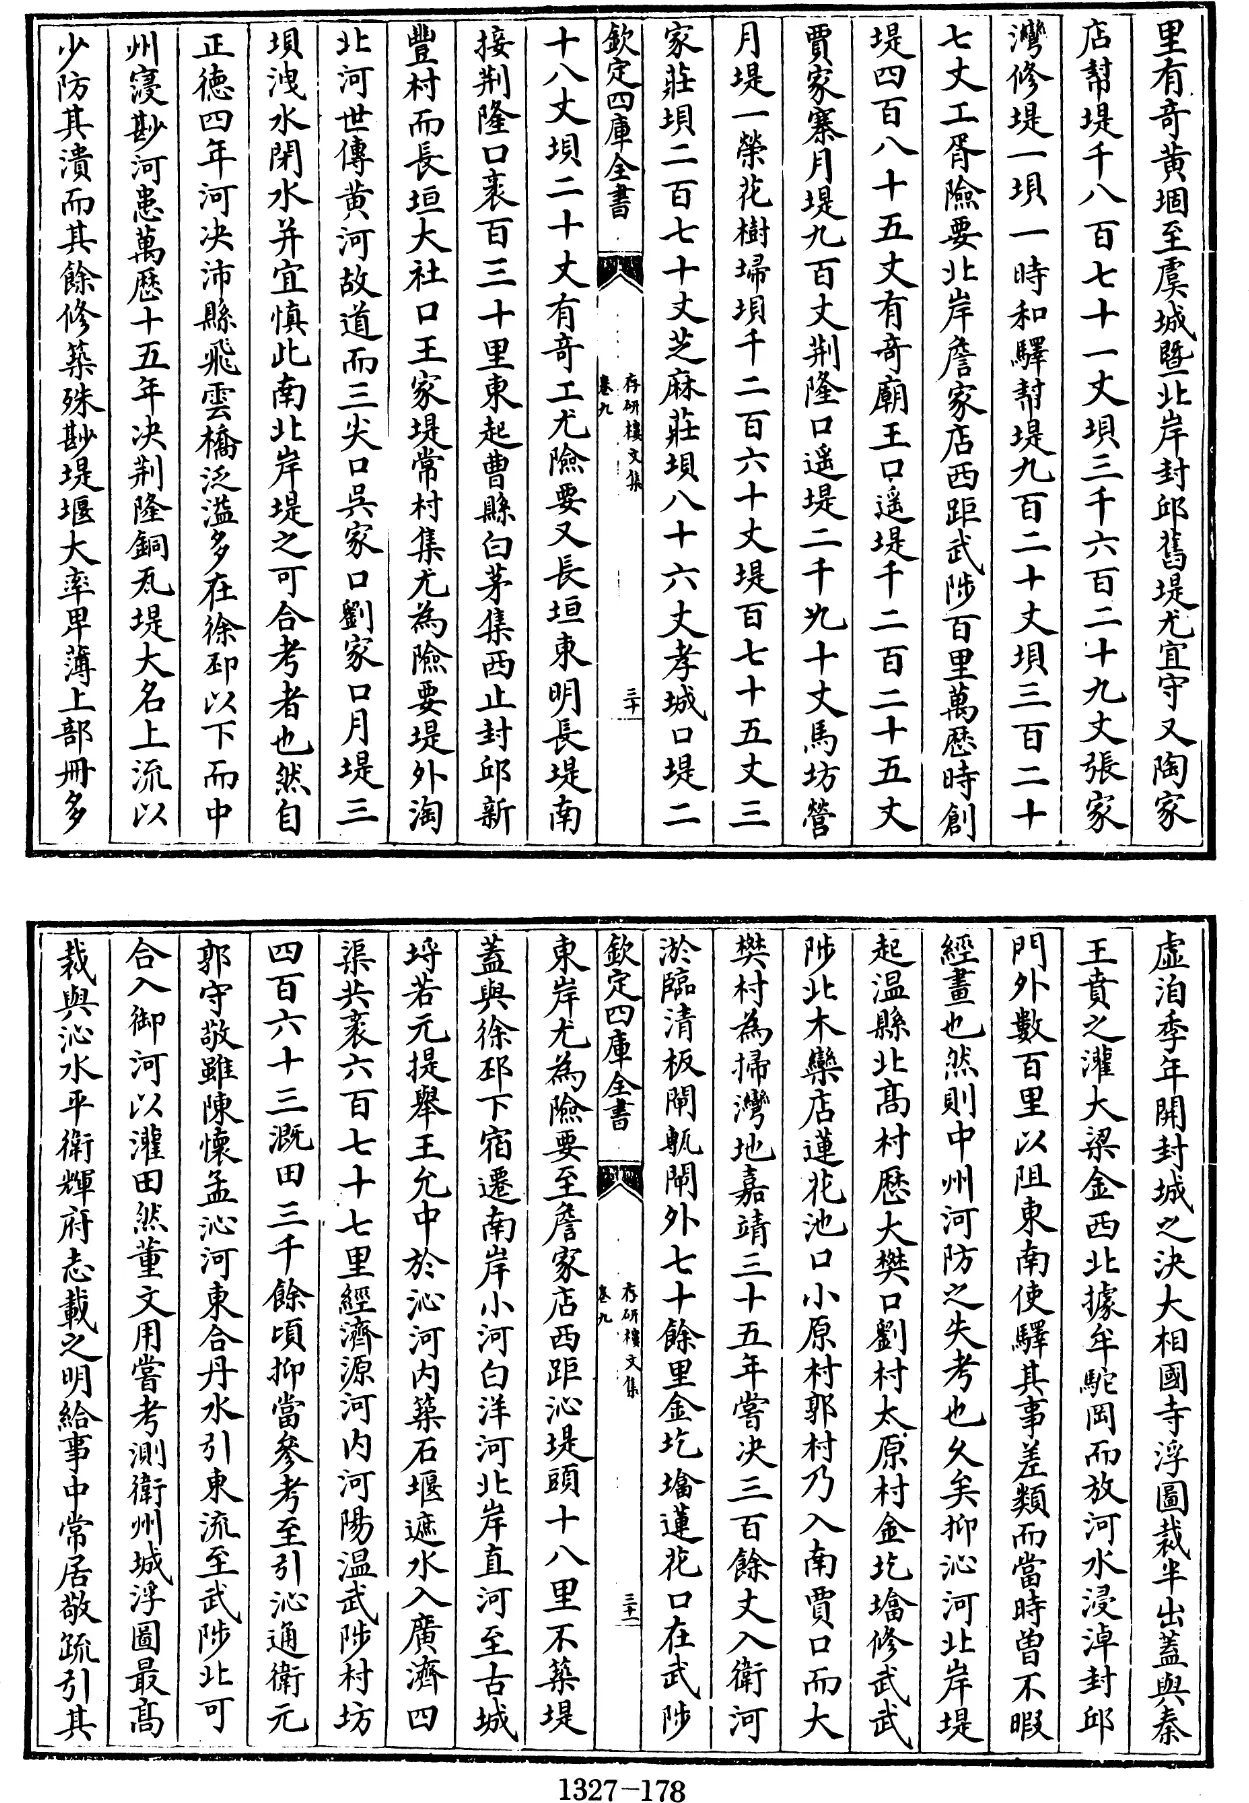 里有奇黃堌至虞城暨北岸封邱舊堤尤宜守又陶家
店幇堤千八百七十一丈垻三千六百二十九丈張家
灣修堤一垻一時和驛幇堤九百二十丈垻三百二十
七丈工胥險要北岸詹家店西距武陟百里萬歷時創
堤四百八十五丈有奇廟王口遥堤千二百二十五丈
賈家寨月堤九百丈荆隆口遥堤二千九十丈馬坊營
月堤一榮花樹埽垻千二百六十丈堤百七十五丈三
家莊垻二百七十丈芝麻莊垻八十六丈孝城口堤二
欽定四庫全書
存研樓文集
卷九
三十
十八丈垻二十丈有奇工尤險要又長垣東明長堤南
接荆隆口袤百三十里東起曹縣白茅集西止封邱新
豐村而長垣大社口王家堤常村集尤為險要堤外淘
北河世傳黄河故道而三尖口吳家口劉家口月堤三
垻洩水閉水并宜慎此南北岸堤之可合考者也然自
正德四年河决沛縣飛雲橋泛溢多在徐邳以下而中
州寖尠河患萬歷十五年决荆隆銅瓦堤大名上流以
少防其潰而其餘修築殊尠堤堰大率卑薄上部冊多
虚泊季年開封城之決大相國寺浮圖裁半出蓋與秦
王賁之灌大梁金西北據牟駝岡而放河水浸淖封邱
門外數百里以阻東南使驛其事差類而當時曽不暇
經畫也然則中州河防之失考也久矣抑沁河北岸堤
起温縣北髙村歴大樊口劉村太原村金圪壋修武武
陟北木欒店蓮花池口小原村郭村乃入南賈口而大
樊村為掃灣地嘉靖三十五年嘗决三百餘丈入衛河
淤臨清板閘甎閘外七十餘里金圪壋蓮花口在武陟
欽定四庫全書
存研樓文集
卷九
三十一
東岸尤為險要至詹家店西距沁堤頭十八里不築堤
蓋與徐邳下宿遷南岸小河白洋河北岸直河至古城
埒若元提舉王允中於沁河内築石堰遮水入廣濟四
渠共袤六百七十七里經濟源河内河陽温武陟村坊
四百六十三溉田三千餘頃抑當參考至引沁通衛元
郭守敬雖陳懷孟沁河東合丹水引東流至武陟北可
合入御河以灌田然董文用嘗考測衛州城浮圖最髙
裁與沁水平衛輝府志載之明給事中常居敬䟽引其
1327-178